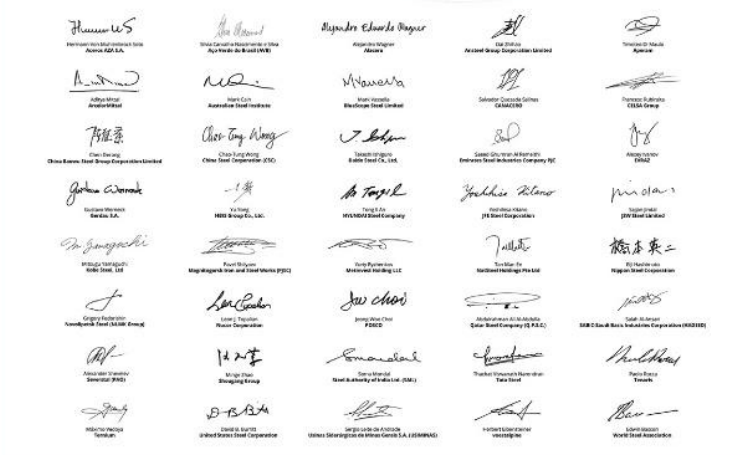 Alejandro Eduardo Wagner
Hermann Von Mühlenbrock Soto
Aceros AZA S.A.
Silvia Carvalho Nascimento e Silva
Aço Verde do Brasil (AVB)
Alejandro Wagner
Alacero
Dai Zhihao
Ansteel Group Corporation Limited
Timoteo Di Maulo
Aperam
Aditya Mittal
ArcelorMittal
Mark Cain
Australian Steel Institute
Mark Vassella
BlueScope Steel Limited
Salvador Quesada Salinas
CANACERO
Francesc Rubiralta
CELSA Group
Chao-Tung Wong
Chen Derong
China Baowu Steel Group Corporation Limited
Chao-Tung Wong
China Steel Corporation (CSC)
Takashi Ishiguro
Daido Steel Co., Ltd.
Saeed Ghumran Al Remeithi
Emirates Steel Industries Company PJC
Alexey Ivanov
EVRAZ
Gustavo Werneck
Yoshihisa Kitano
Gustavo Werneck
Gerdau S.A.
Yu Yong
HBIS Group Co., Ltd.
Tong Il An
HYUNDAI Steel Company
Yoshihisa Kitano
JFE Steel Corporation
Sajjan Jindal
JSW Steel Limited
M. Yamaguchi
橋本英二
Mitsugu Yamaguchi
Kobe Steel, Ltd
Pavel Shilyaev
Magnitogorsk Iron and Steel Works (PJSC)
Yuriy Ryzhenkov
Metinvest Holding LLC
Tan Wan Ee
NatSteel Holdings Pte Ltd
Eiji Hashimoto
Nippon Steel Corporation
Grigory Fedorishin
Novolipetsk Steel (NLMK Group)
Leon J. Topalian
Nucor Corporation
Jeong Woo Choi
POSCO
Abdulrahman Ali Al-Abdulla
Qatar Steel Company (Q.P.S.C.)
Salah Al-Ansari
SABIC Saudi Basic Industries Corporation (HADEED)
Alexander Shevelev
Severstal (PAO)
Minge Zhao
Shougang Group
Soma Mondal
Steel Authority of India Ltd. (SAIL)
Thachat Viswanath Narendran
Tata Steel
Paolo Rocca
Tenaris
Máximo Vedoya
Ternium
David B. Burritt
United States Steel Corporation
Sergio Leite de Andrade
Usinas Siderúrgicas de Minas Gerais S.A. (USIMINAS)
Herbert Eibensteiner
voestalpine
Edwin Basson
World Steel Association